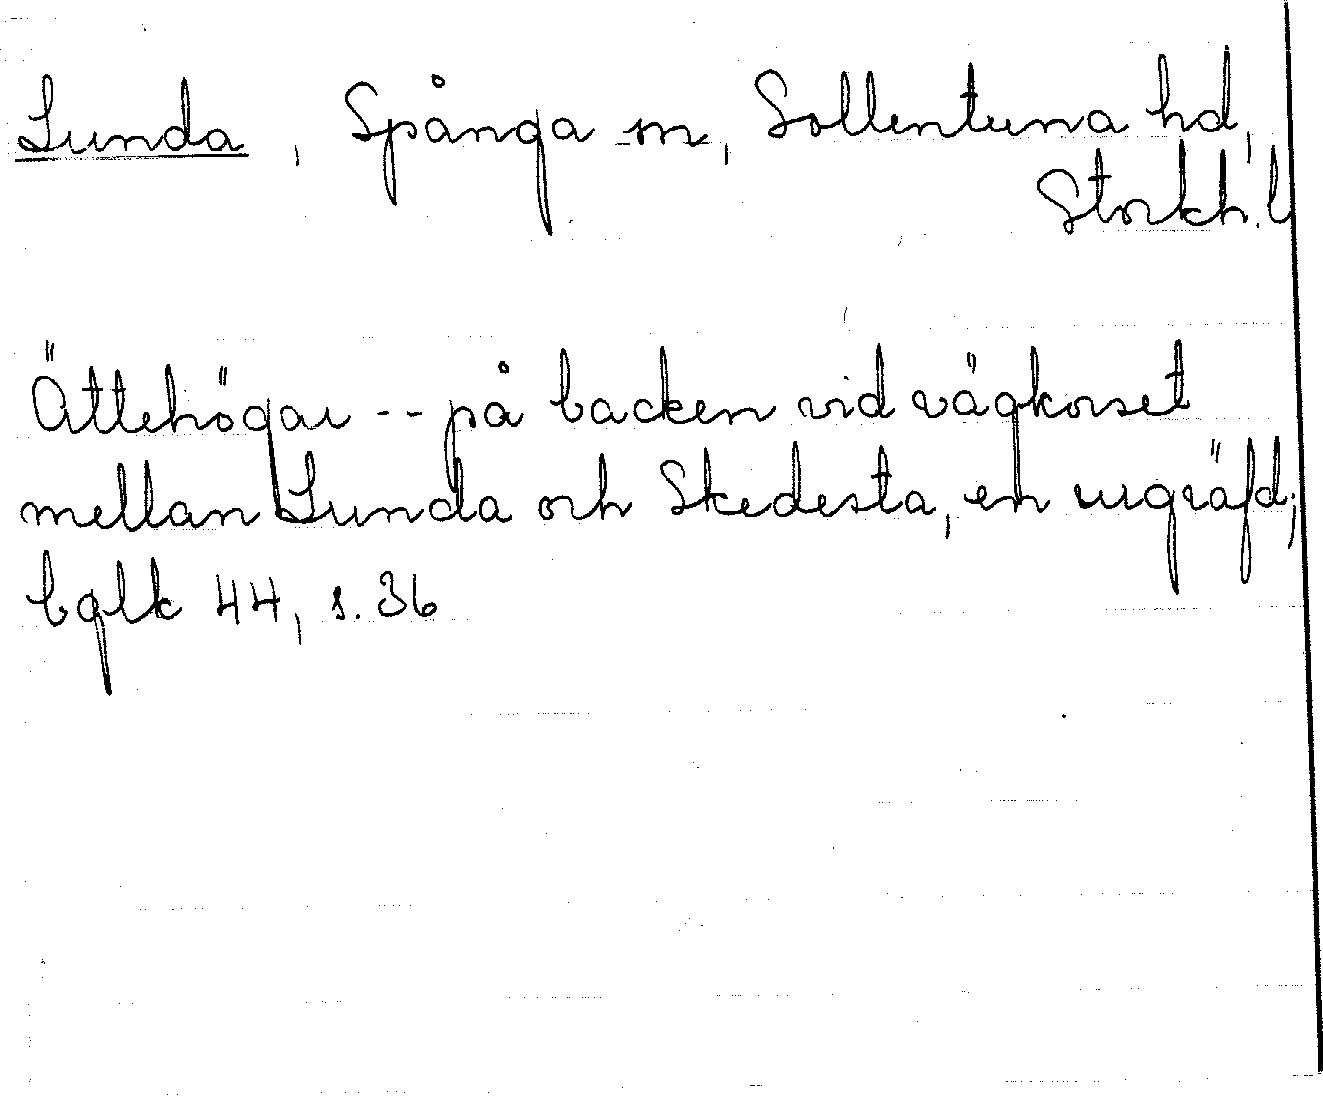 Lunda, Spånga sn, Sollentuna hd,
Stockh. l
Ättehögar -- på backen vid vägkorset
mellan Lunda och Skedesta, en urgräfd;
bglk 44, s. 36